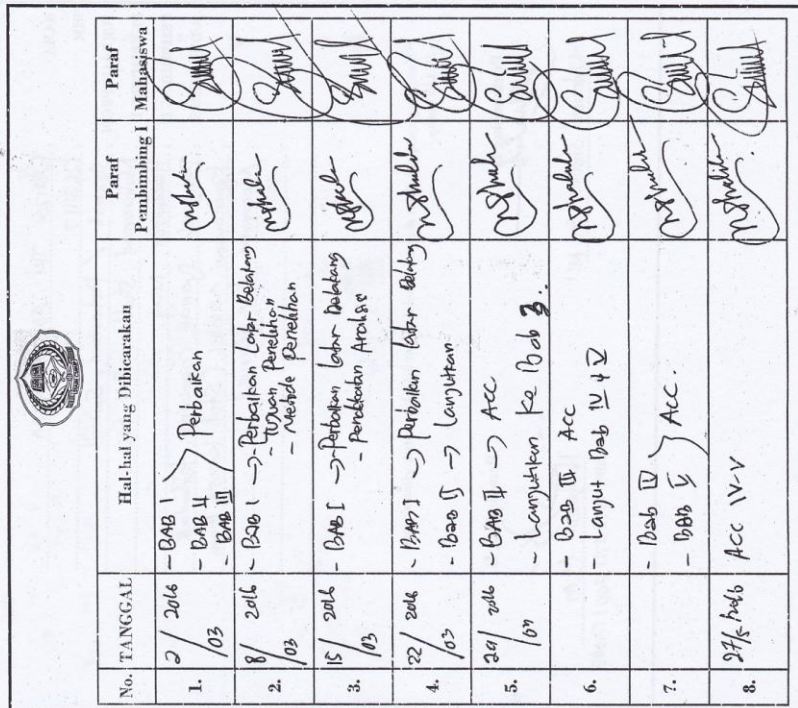 No. TANGGAL Hal-hal yang Dibicarakan Paraf Pembimbing I Paraf Mahasiswa
1. 2/03 2016 - BAB I
- BAB II Perbaikan
- BAB III
2. 8/03 2016 - BAB I → Perbaikan Latar Belakang
- Tujuan Penelitian
- Metode Penelitian
3. 15/03 2016 - BAB I → Perbaikan latar Belakang
- Pendekatan Analisis
4. 22/03 2016 - BAB I → Perbaikan latar Belakang
- Bab II → Lanjutkan
5. 29/03 2016 - BAB II → Acc
- Lanjutkan ke Bab 3.
6. - Bab III Acc
- Lanjut Bab IV & V
7. - Bab IV
- BAB V Acc.
8. 27/5 2016 Acc IV-V